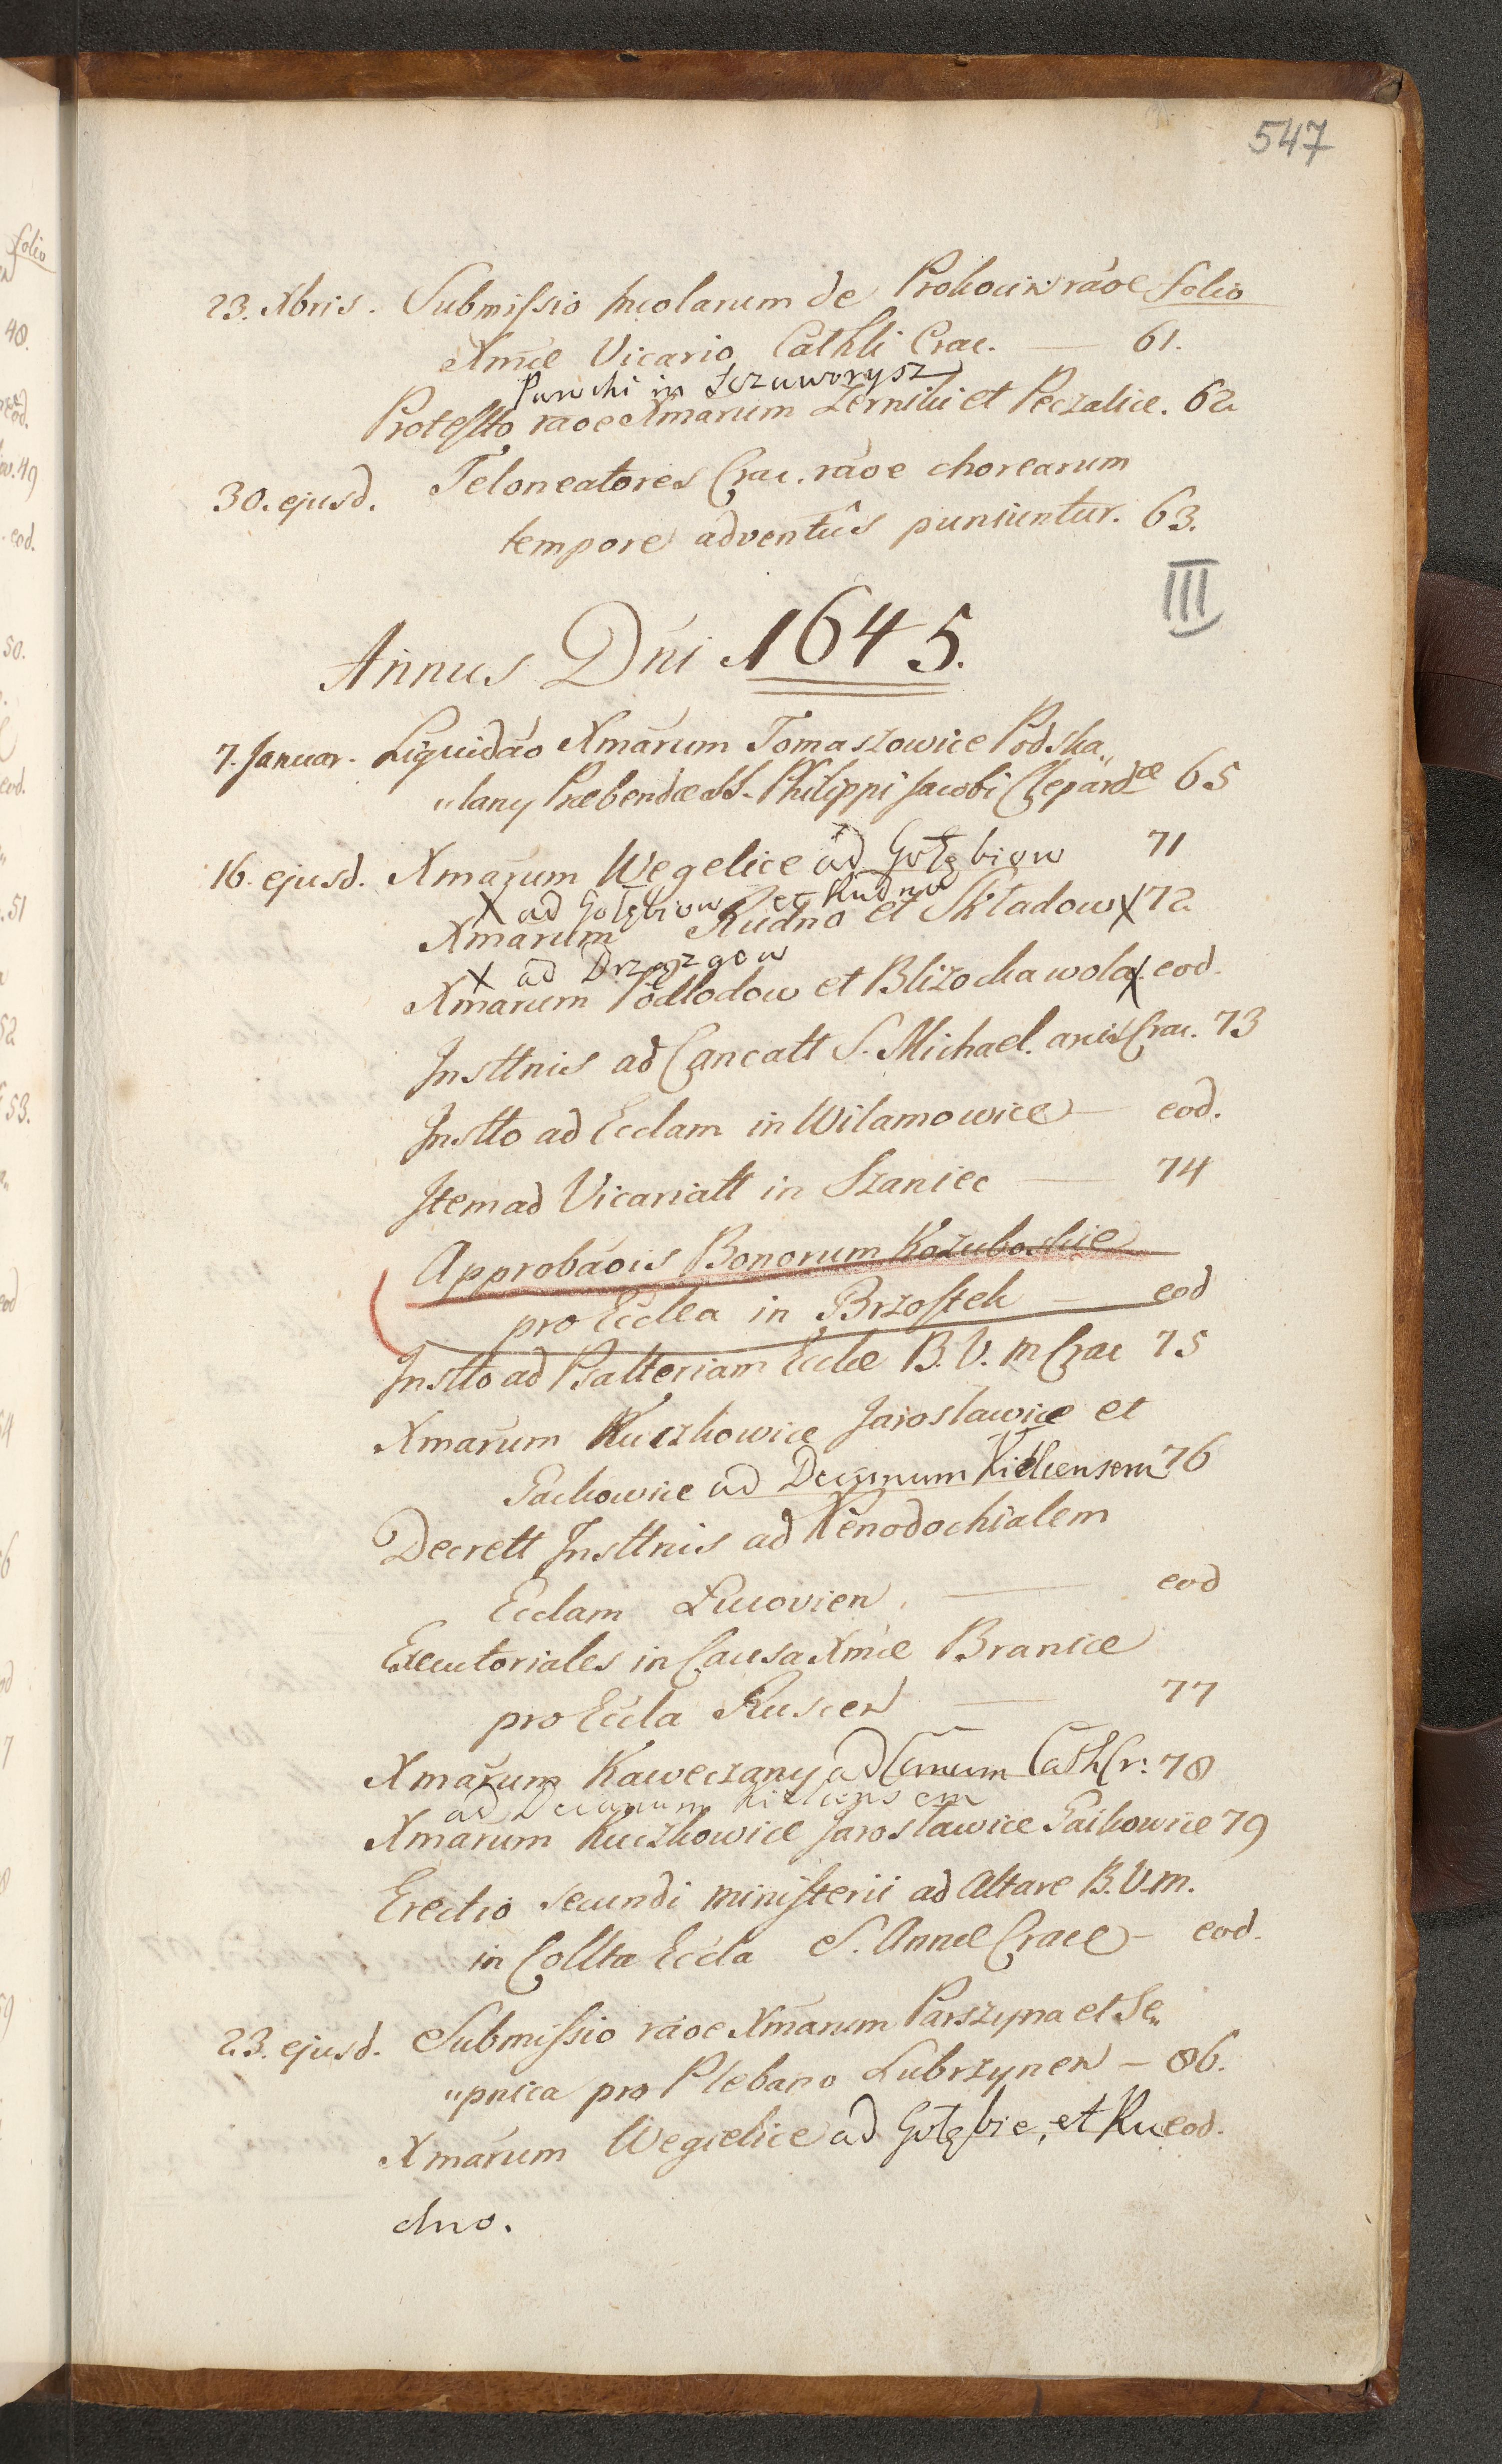 547
23. Xbris. Submissio Incolarum de Prokocin raõe folio
Xmæ Vicario Cathli Crac. — 61.
Parochi in Szuworysz
Protestto raoe Xmarum Zerniki et Peczalice. 62
30. ejusd. Teloneatores Crac. raõe chorearum
tempore adventûs puniuntur. 63.
III
Annus Dni 1645.
7. Januar. Liquidaõ Xmarum Tomaszowice Podska„
„lany Præbendæ SS. Philippi Jacobi Clepardæ 65
16. ejusd. Xmarum Wegelice ad Gołębiow 71
X ad Gołębiow et Rudno
Xmarum Rudno et Składow X 72
X ad Drzązgow
Xmarum Podlodow et Blizocka wola X eod.
Insttnis ad Cancatt S. Michael. arcis Crac. 73
Instto ad Ecclam in Wilamowice — eod.
Item ad Vicariatt in Szaniec — 74
Approbaõis Bonorum Kozuboskie
pro Ecclea in Brzostek — eod
Instto ad Psalteriam Eccłæ B. V. M Crac 75
Xmarum Kuczkowice Jaroslawice et
Packowice ad Decanum Kielcensem 76
Decrett Insttnis ad Xenodochialem
Ecclam Lwovien. — eod
Executoriales in Causa Xmæ Branice
pro Eccla Ruscen — 77
Xmarum Kaweczany ad Canum Cath Cr: 78
ad Decanum Kielcensem
Xmarum Kuczkowice Jarosławice Paikowice 79
Erectio secundi ministerii ad Altare B. V. M.
in Collta Eccla S. Annæ Crace — eod.
23. ejusd. Submissio raõe Xmarum Parszyna et Se„
„pnica pro Plebano Lubrzynen — 86.
Xmarum Wegielice ad Gołębie, et Ru eod.
dno.